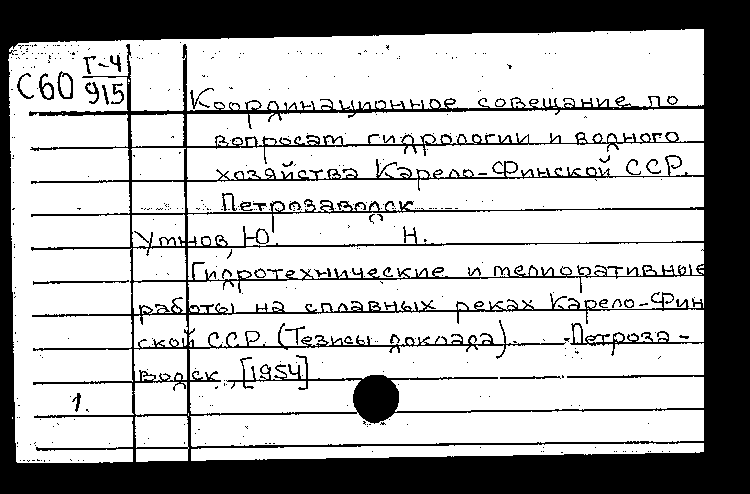 С60 Г-4/915
Координационное совещание по
вопросам гидрологии и водного
хозяйства Карело-Финской ССР.
Петрозаводск
Утнов, Ю. Н.
Гидротехнические и мелиоративные
работы на сплавных реках Карело-Фин
ской ССР. (Тезисы доклада) -Петроза-
водск, [1954]
1.